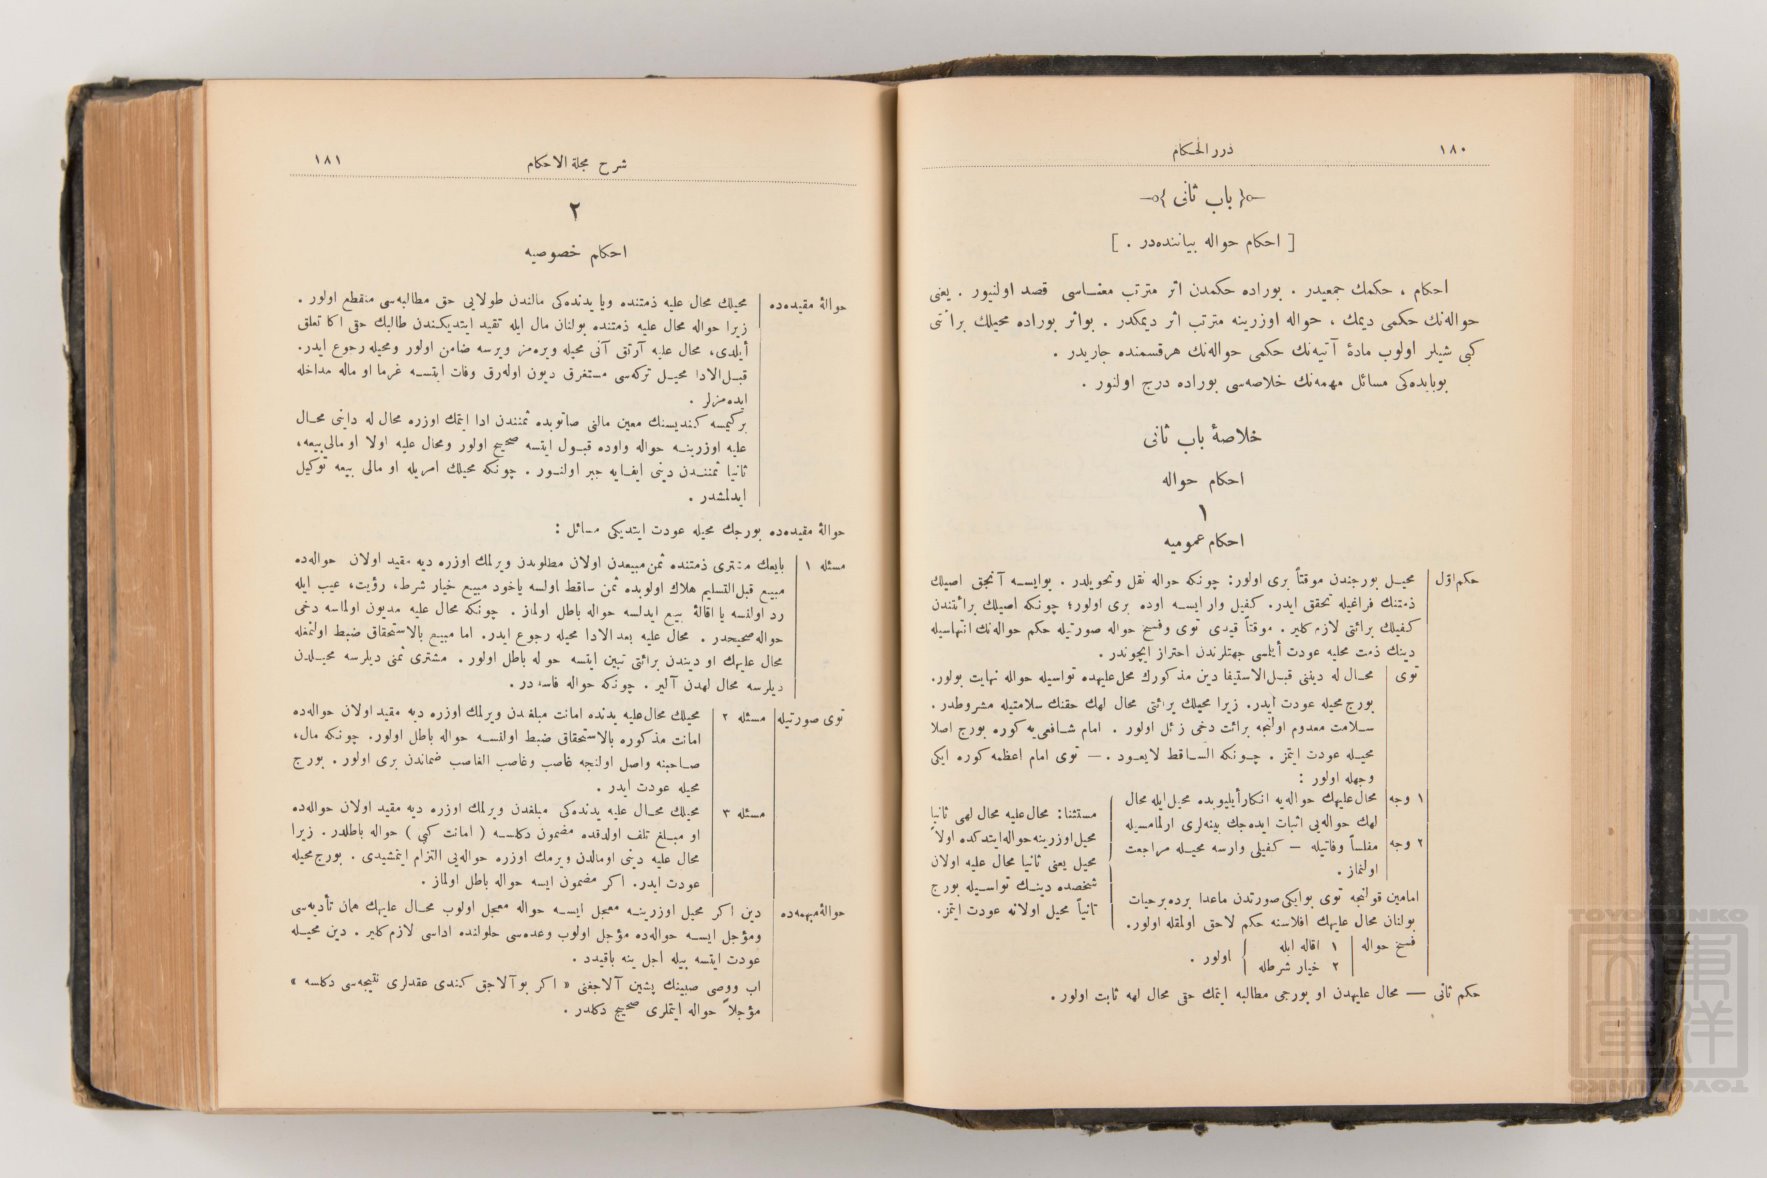 ١٨٠
درر الحكام
باب ثانی
[ احكام حواله بياننده‌در . ]
احكام ، حكمك جمعيدر . بوراده حكمدن اثر مترتب معناسی قصد اولنيور . يعنی
حواله‌نك حكمی ديمك ، حواله اوزرينه مترتب اثر ديمكدر . بواثر بوراده محيلك برائتی
كبی شيلر اولوب مادهٔ آتيه‌نك حكمی حواله‌نك هرقسمنده جاريدر .
بوبابده‌كی مسائل مهمه‌نك خلاصه‌سی بوراده درج اولنور .
خلاصهٔ باب ثانی
احكام حواله
١
احكام عموميه
حكم اول
محيل بورجندن موقتاً بری اولور: چونكه حواله نقل وتحويلدر . بوايسه آنجق اصيلك
ذمتنك فراغيله تحقق ايدر. كفيل وار ايسه اوده بری اولور؛ چونكه اصيلك برائتندن
كفيلك برائتی لازم كلير . موقتاً قيدی توی وفسخ حواله صورتيله حكم حواله‌نك انتهاسيله
دينك ذمت محيله عودت ايتمسی جهتلرندن احتراز ايچوندر .
توی
محال له دينی قبل الاستيفا دين مذكورك محل عليهده تواسيله حواله نهايت بولور.
بورج محيله عودت ايدر. زيرا محيلك برائتی محال لهك حقنك سلامتيله مشروطدر .
سلامت معدوم اولنجه برائت دخی زائل اولور . امام شافعی‌يه كوره بورج اصلا
محيله عودت ايتمز . چونكه الساقط لايعود . — توی امام اعظمه كوره ايكی
وجهله اولور :
١ وجه
محال عليهك حواله‌يه انكار ايليوبده محيل ايله محال
لهك حواله‌یی اثبات ايده‌جك بينه‌لری اولمامسيله
٢ وجه
مفلساً وفاتيله — كفيلی وارسه محيله مراجعت
اولنماز .
مستثنا: محال عليه محال لهی ثانيا
محيل اوزرينه حواله ايتدكده اولاً
محيل يعنی ثانيا محال عليه اولان
شخصده دينك تواسيله بورج
ثانياً محيل اولانه عودت ايتمز.
امامين قولنجه توی بوايكی صورتدن ماعدا برده برحيات
بولنان محال عليهك افلاسنه حكم لاحق اولمقله اولور.
فسخ حواله
١ اقاله ايله
٢ خيار شرطله
اولور .
حكم ثانی — محال عليهدن او بورجی مطالبه ايتمك حقی محال لهه ثابت اولور.
شرح مجلة الاحكام
١٨١
٢
احكام خصوصيه
حوالهٔ مقيده‌ده
محيلك محال عليه ذمتنده ويا يدنده‌كی مالندن طولايی حق مطالبه‌سی منقطع اولور .
زيرا حواله محال عليه ذمتنده بولنان مال ايله تقيد ايتديكندن طالبك حقی اكا تعلق
ايلدی، محال عليه آرتق آنی محيله ويره‌مز ويرسه ضامن اولور ومحيله رجوع ايدر.
قبل الادا محيل تركه‌سی مستغرق ديون اوله‌رق وفات ايتسه غرما او ماله مداخله
ايده‌مزلر .
بركيمسه كنديسنك معين مالی صاتوبده ثمنندن ادا ايتمك اوزره محال له داينی محال
عليه اوزرينه حواله واوده قبول ايتسه صحيح اولور ومحال عليه اولا او مالی بيعه،
ثانيا ثمنندن دينی ايفايه جبر اولنور . چونكه محيلك امريله او مالی بيعه توكيل
ايدلمشدر .
حوالهٔ مقيده‌ده بورجك محيله عودت ايتديكی مسائل :
مسئله ١
بايعك مشتری ذمتنده ثمن مبيعدن اولان مطلوبدن ويرلمك اوزره ديه مقيد اولان حواله‌ده
مبيع قبل التسليم هلاك اولوبده ثمن ساقط اولسه ياخود مبيع خيار شرط، رؤيت، عيب ايله
رد اولنسه يا اقالهٔ بيع ايدلسه حواله باطل اولماز . چونكه محال عليه مديون اولماسه دخی
حواله صحيحدر . محال عليه بعد الادا محيله رجوع ايدر. اما مبيع بالاستحقاق ضبط اولنمغله
محال عليهك او ديندن برائتی تبين ايتسه حواله باطل اولور . مشتری ثمنی ديلرسه محيلدن
ديلرسه محال لهدن آلير . چونكه حواله فاسددر .
توی صورتيله
مسئله ٢
محيلك محال عليه يدنده امانت مبلغدن ويرلمك اوزره ديه مقيد اولان حواله‌ده
امانت مذكوره بالاستحقاق ضبط اولنسه حواله باطل اولور. چونكه مال،
صاحبنه واصل اولنجه غاصب وغاصب الغاصب ضماندن بری اولور . بورج
محيله عودت ايدر .
مسئله ٣
محيلك محال عليه يدنده‌كی مبلغدن ويرلمك اوزره ديه مقيد اولان حواله‌ده
او مبلغ تلف اولدقده مضمون دكلسه ( امانت كبی ) حواله باطلدر . زيرا
محال عليه دينی اومالدن ويرمك اوزره حواله‌یی التزام ايتمشيدی . بورج محيله
عودت ايدر. اكر مضمون ايسه حواله باطل اولماز .
حوالهٔ مبهمه‌ده
دين اكر محيل اوزرينه معجل ايسه حواله معجل اولوب محال عليهك همان تأديه‌سی
ومؤجل ايسه حواله‌ده مؤجل اولوب وعده‌سی حلولنده اداسی لازم كلير . دين محيله
عودت ايتسه بيله اجل ينه باقيدر .
اب ووصی صبينك پشين آلاجغنی « اكر بو آلاجق كندی عقدلری نتيجه‌سی دكلسه »
مؤجلاً حواله ايتملری صحيح دكلدر .